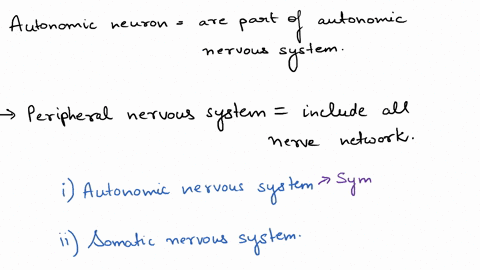 Autonomic neuron = are part of autonomic
nervous system.
→ Peripheral nervous system = include all
nerve network.
i) Autonomic nervous system → Sym
ii) Somatic nervous system.